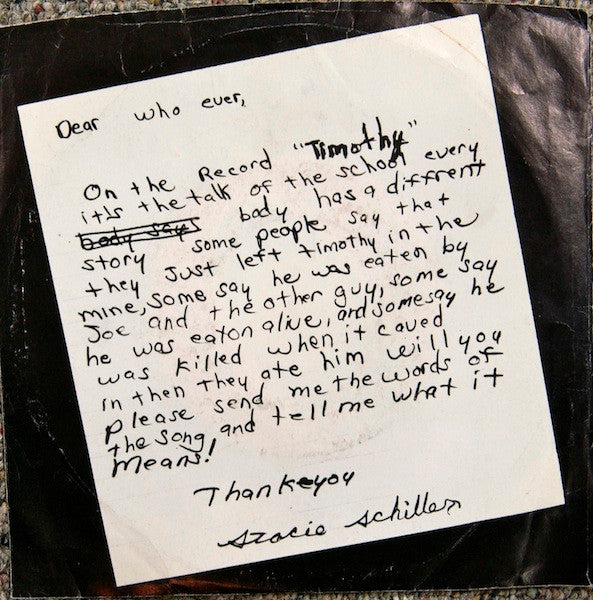 Dear who ever,
On the Record "Timothy"
it's the talk of the school every
body say body has a diffrent
story some people say that
they just left timothy in the
mine, some say he was eaten by
Joe and the other guy, some say
he was eaton alive, and some say he
was killed when it caved
in then they ate him will you
please send me the words of
the song and tell me what it
means!
Thank you
Stacie Schiller